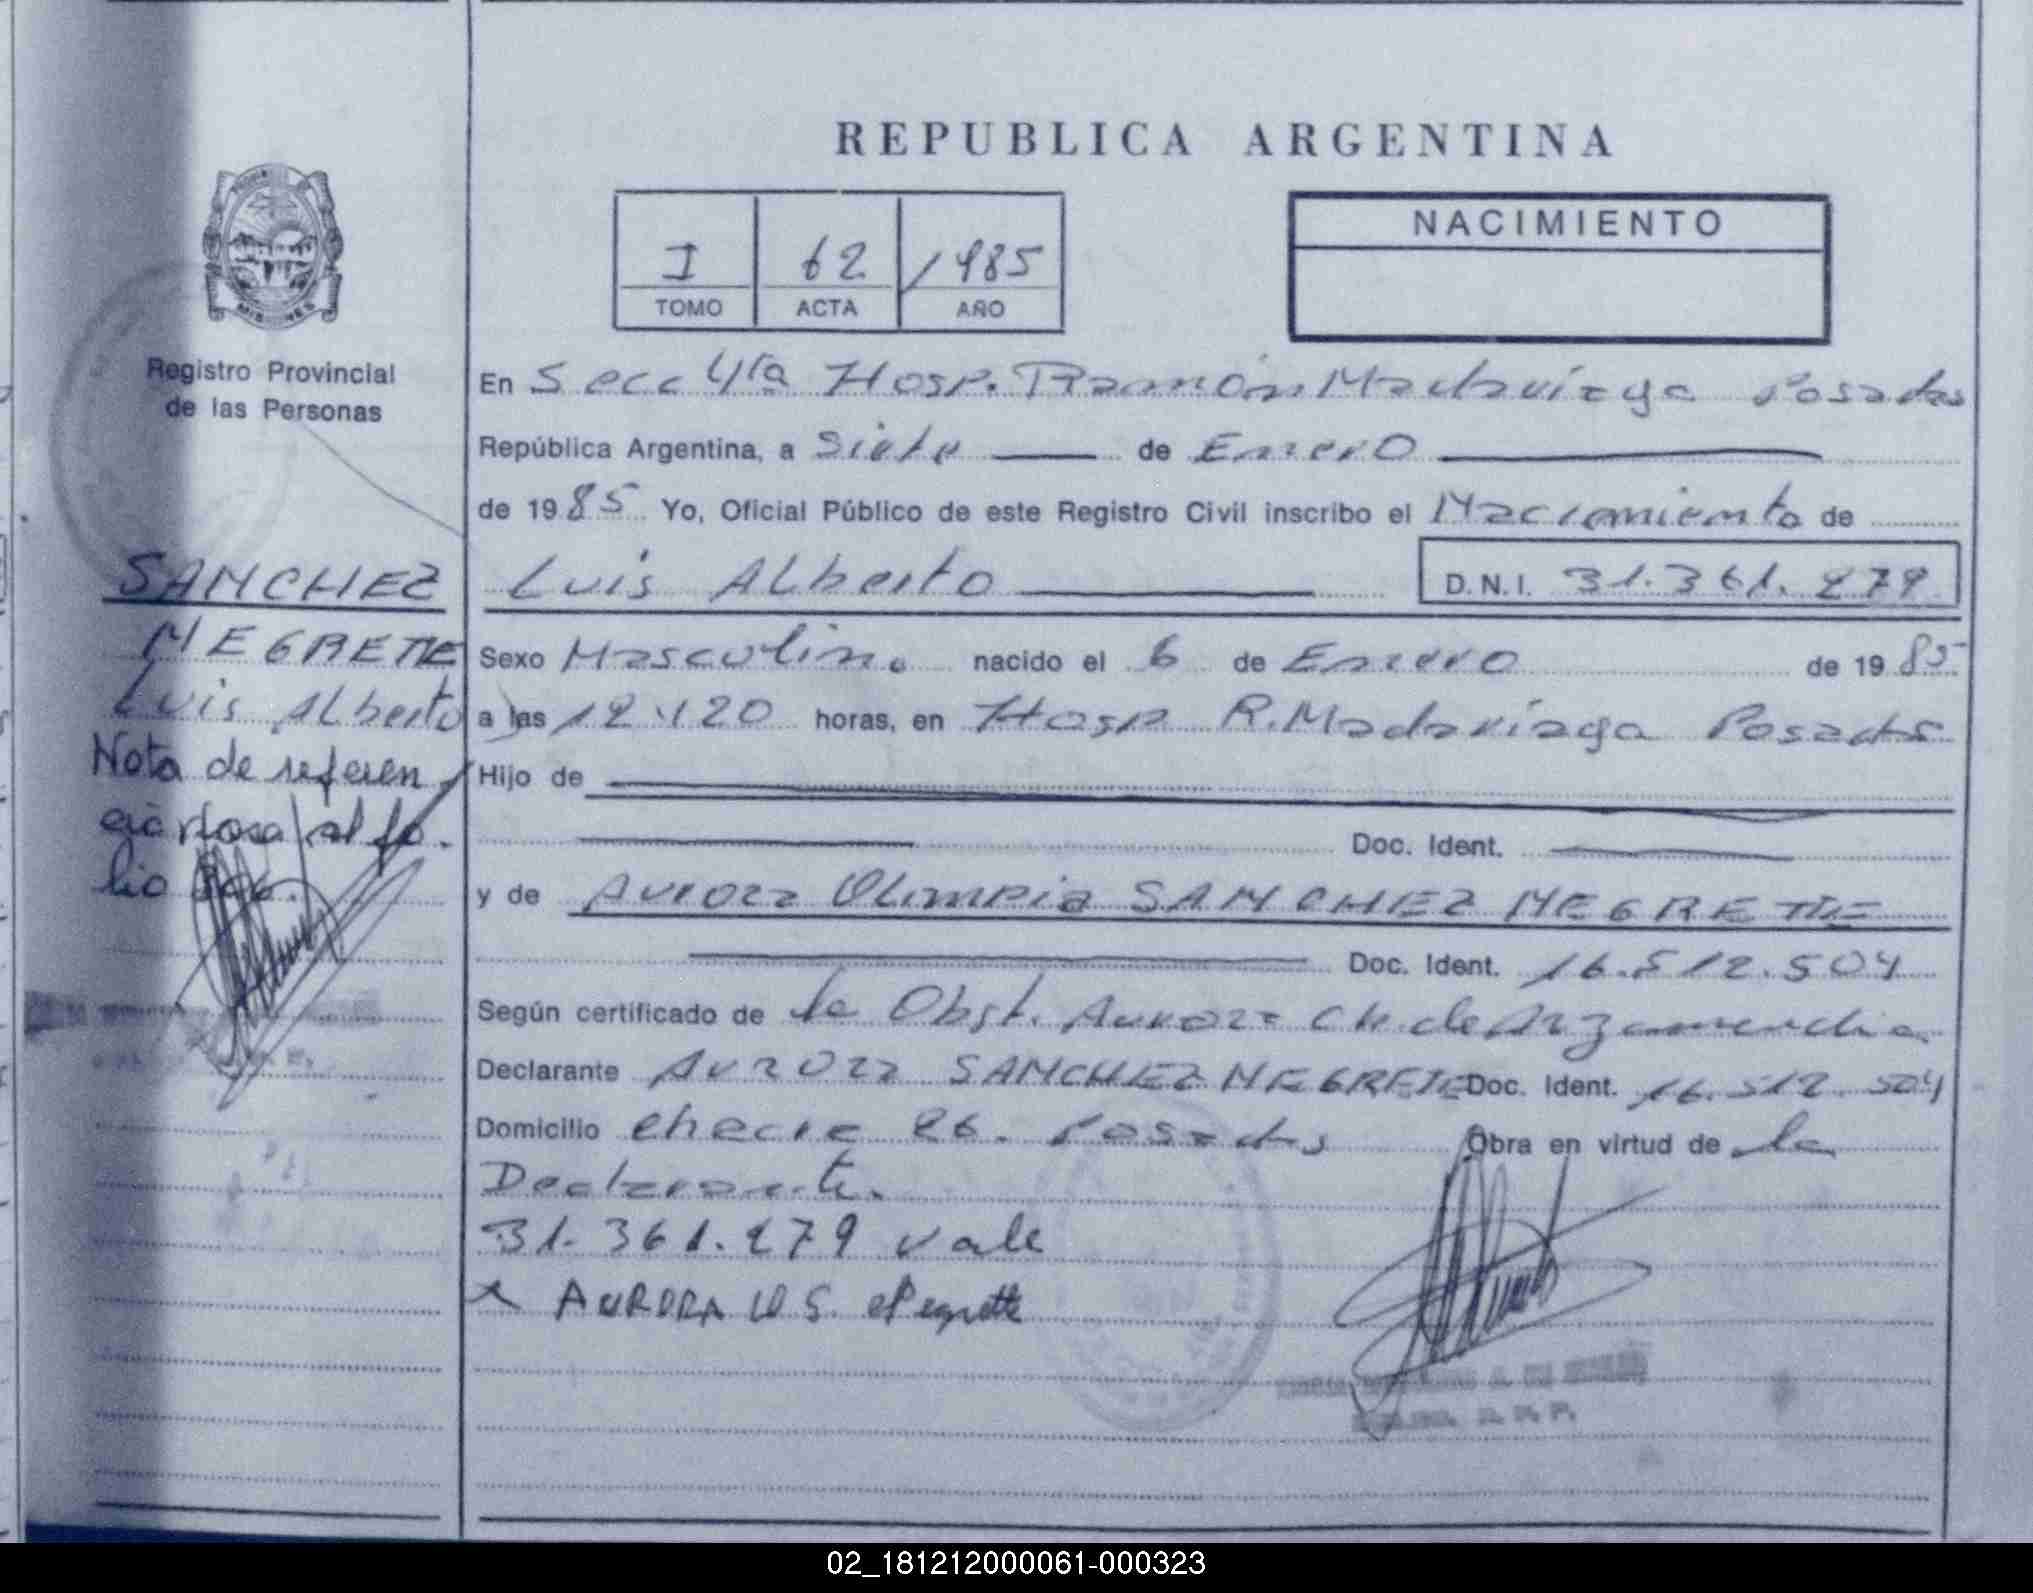 REPUBLICA ARGENTINA
I 62 1985
TOMO ACTA AÑO
NACIMIENTO
MISIONES
Registro Provincial
de las Personas
SANCHEZ
NEGRETTE
Luis Alberto
Nota de referen
cia
al fo.
lio
En Secc 4ta Hosp. Ramón Madariaga Posadas
República Argentina, a Siete de Enero
de 1985 Yo, Oficial Público de este Registro Civil inscribo el Nacimiento de
Luis Alberto D.N.I. 31.361.279
Sexo Masculino nacido el 6 de Enero de 1985
a las 12,120 horas, en Hosp R. Madariaga Posadas
Hijo de
Doc. Ident.
y de Aurora Olimpia SANCHEZ NEGRETTE
Doc. Ident. 16.512.504
Según certificado de la Obst. Aurora Ch. de Arzamendia
Declarante Aurora SANCHEZ NEGRETTE Doc. Ident. 16.512.504
Domicilio Chacra 26. Posadas Obra en virtud de la
Declarante.
31.361.279 Vale
x AURORA O S. Negrette
02_181212000061-000323